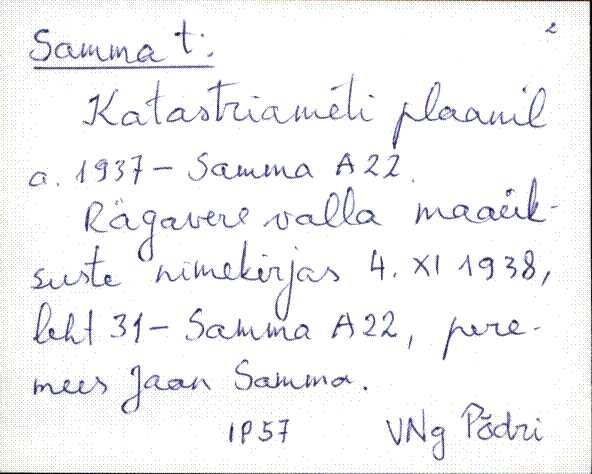 2
Samma t:
Katastriameti plaanil
a. 1937 – Samma A22.
Rägavere valla maaük-
suste nimekirjas 4. XI 1938,
leht 31 – Samma A22, pere-
mees Jaan Samma.
IP57 VNg Põdri